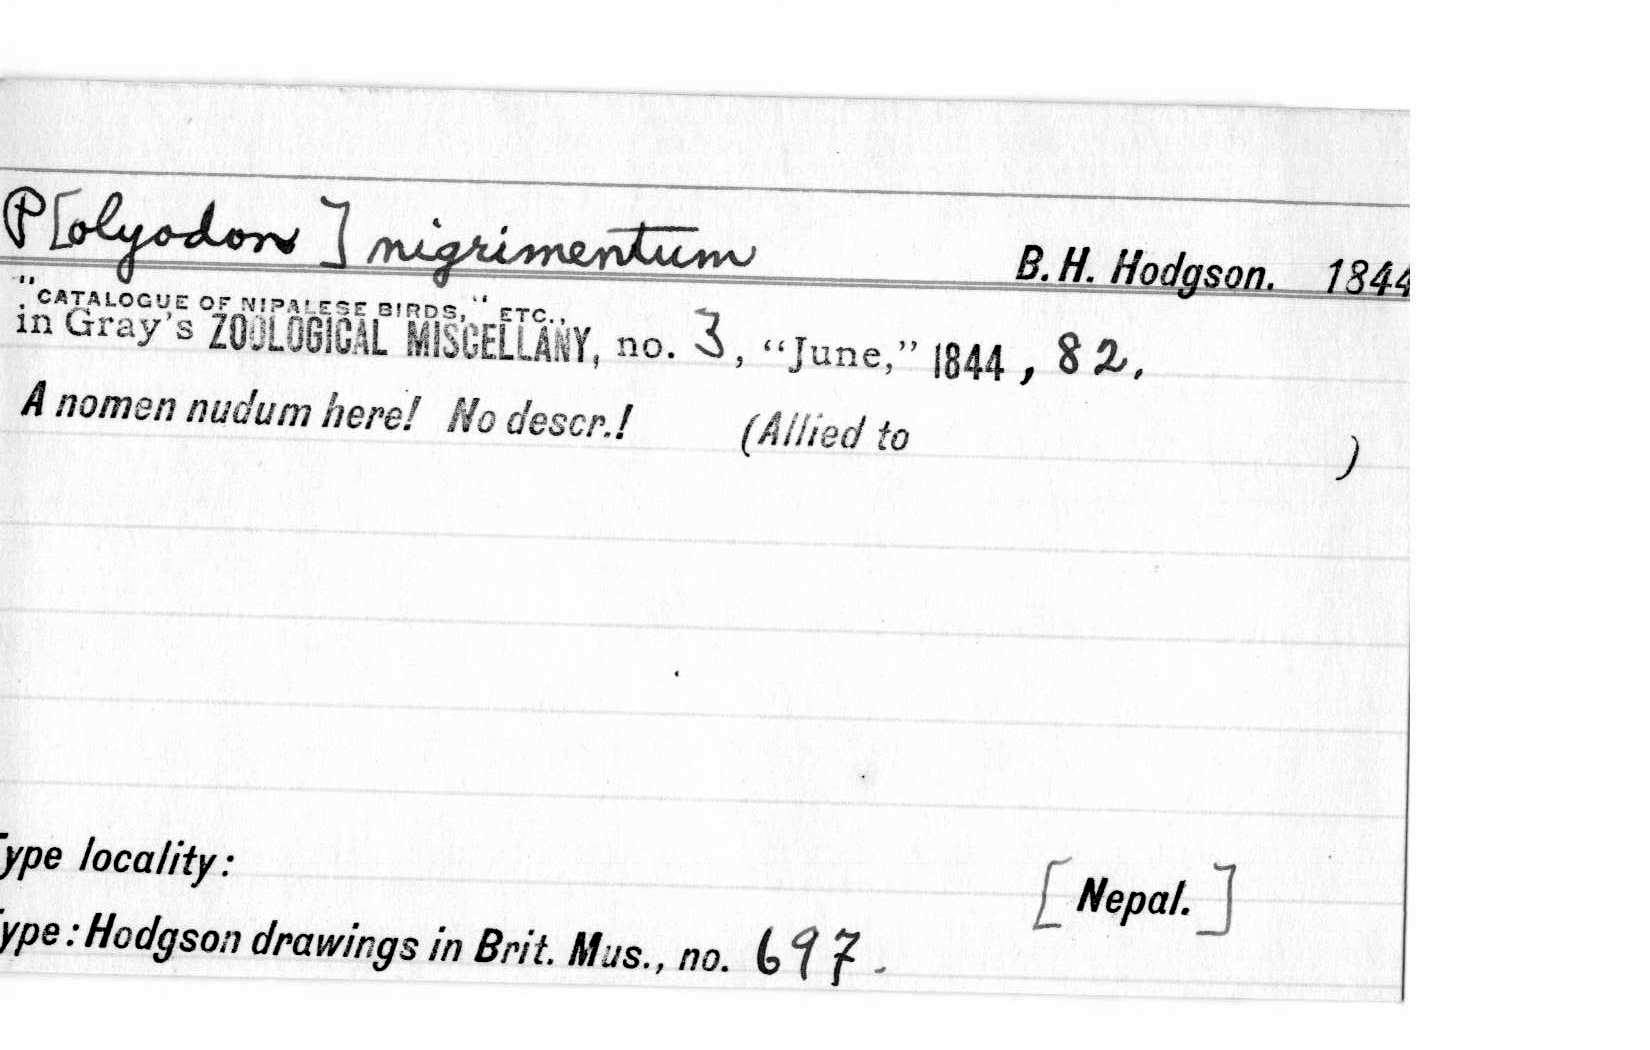 P[olyodon] nigrimentum B. H. Hodgson. 1844
"CATALOGUE OF NIPALESE BIRDS," ETC.,
in Gray's ZOOLOGICAL MISCELLANY, no. 3, “June,” 1844, 82.
A nomen nudum here! No descr.! (Allied to )
Type locality: [Nepal.]
Type: Hodgson drawings in Brit. Mus., no. 697.